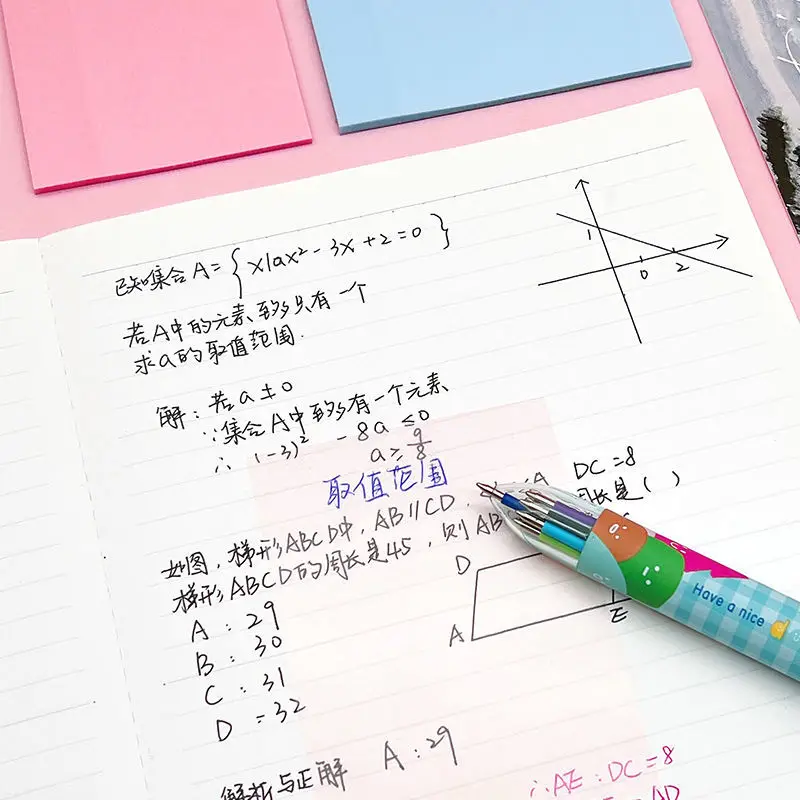 已知集合 A = { x | ax² - 3x + 2 = 0 }
若A中的元素至多只有一个
求a的取值范围.
解：若 a ≠ 0
∵集合A中至多有一个元素
∴ (-3)² - 8a ≤ 0
a ≥ 9/8
取值范围
如图，梯形ABCD中，AB∥CD， DC=8
梯形ABCD的周长是45，则 AB 周长是( )
A：29
B：30
C：31
D：32
解析与正解 A：29
1
0
2
D
A
E
∴AE：DC=8
AD
Have a nice